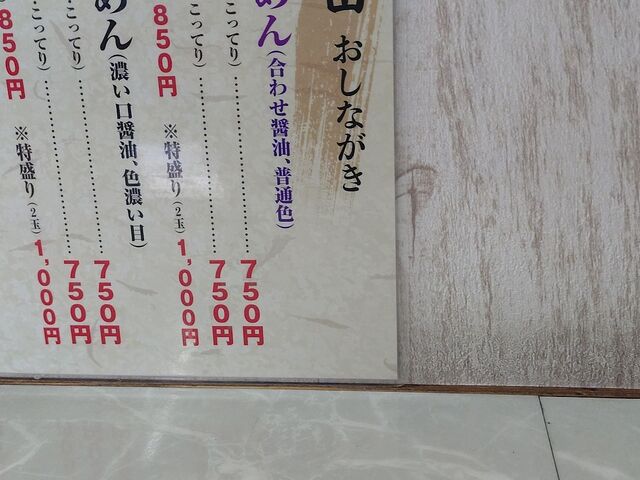 おしながき
めん(合わせ醤油、普通色)
750円
こってり) 750円
850円 ※特盛り(2玉) 1,000円
めん(濃い口醤油、色濃い目)
750円
こってり) 750円
850円 ※特盛り(2玉) 1,000円